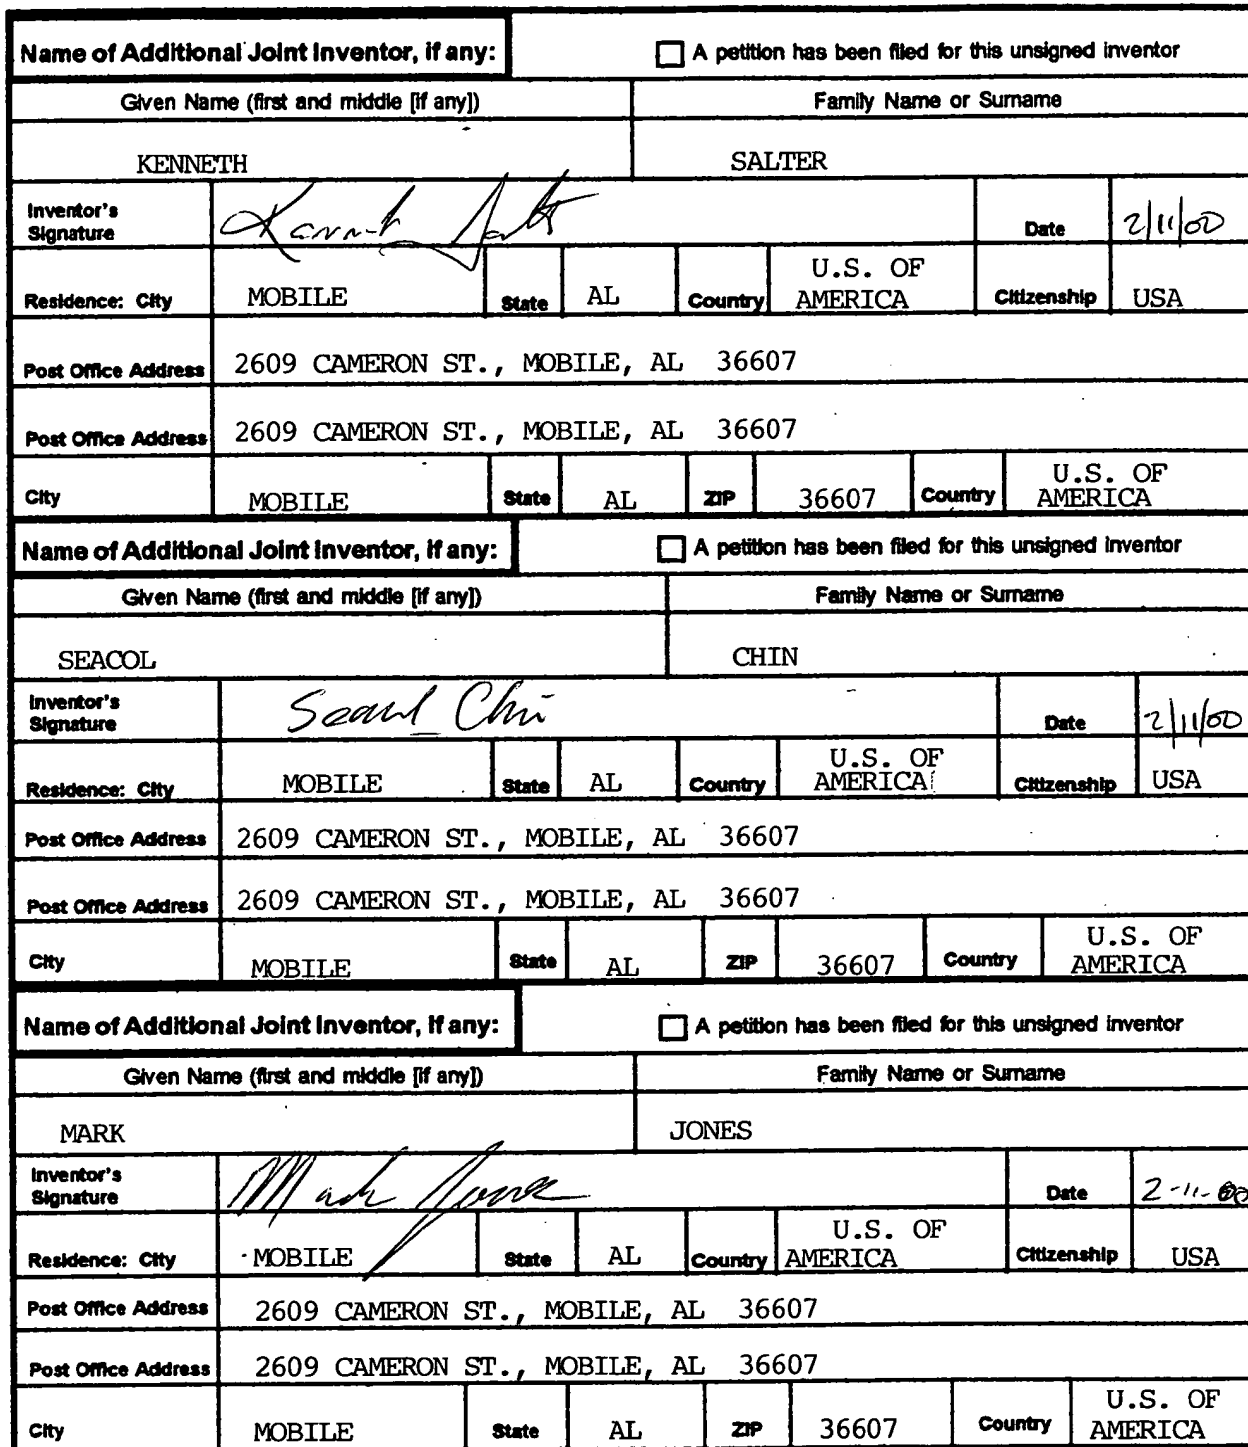 Name of Additional Joint Inventor, if any: A petition has been filed for this unsigned inventor
Given Name (first and middle [if any]) Family Name or Surname
KENNETH SALTER
Inventor's Signature Kenneth Salter Date 2/11/00
Residence: City MOBILE State AL Country U.S. OF AMERICA Citizenship USA
Post Office Address 2609 CAMERON ST., MOBILE, AL 36607
Post Office Address 2609 CAMERON ST., MOBILE, AL 36607
City MOBILE State AL ZIP 36607 Country U.S. OF AMERICA
Name of Additional Joint Inventor, if any: A petition has been filed for this unsigned inventor
Given Name (first and middle [if any]) Family Name or Surname
SEACOL CHIN
Inventor's Signature Seacol Chin Date 2/11/00
Residence: City MOBILE State AL Country U.S. OF AMERICA Citizenship USA
Post Office Address 2609 CAMERON ST., MOBILE, AL 36607
Post Office Address 2609 CAMERON ST., MOBILE, AL 36607
City MOBILE State AL ZIP 36607 Country U.S. OF AMERICA
Name of Additional Joint Inventor, if any: A petition has been filed for this unsigned inventor
Given Name (first and middle [if any]) Family Name or Surname
MARK JONES
Inventor's Signature Mark Jones Date 2-11-00
Residence: City MOBILE State AL Country U.S. OF AMERICA Citizenship USA
Post Office Address 2609 CAMERON ST., MOBILE, AL 36607
Post Office Address 2609 CAMERON ST., MOBILE, AL 36607
City MOBILE State AL ZIP 36607 Country U.S. OF AMERICA